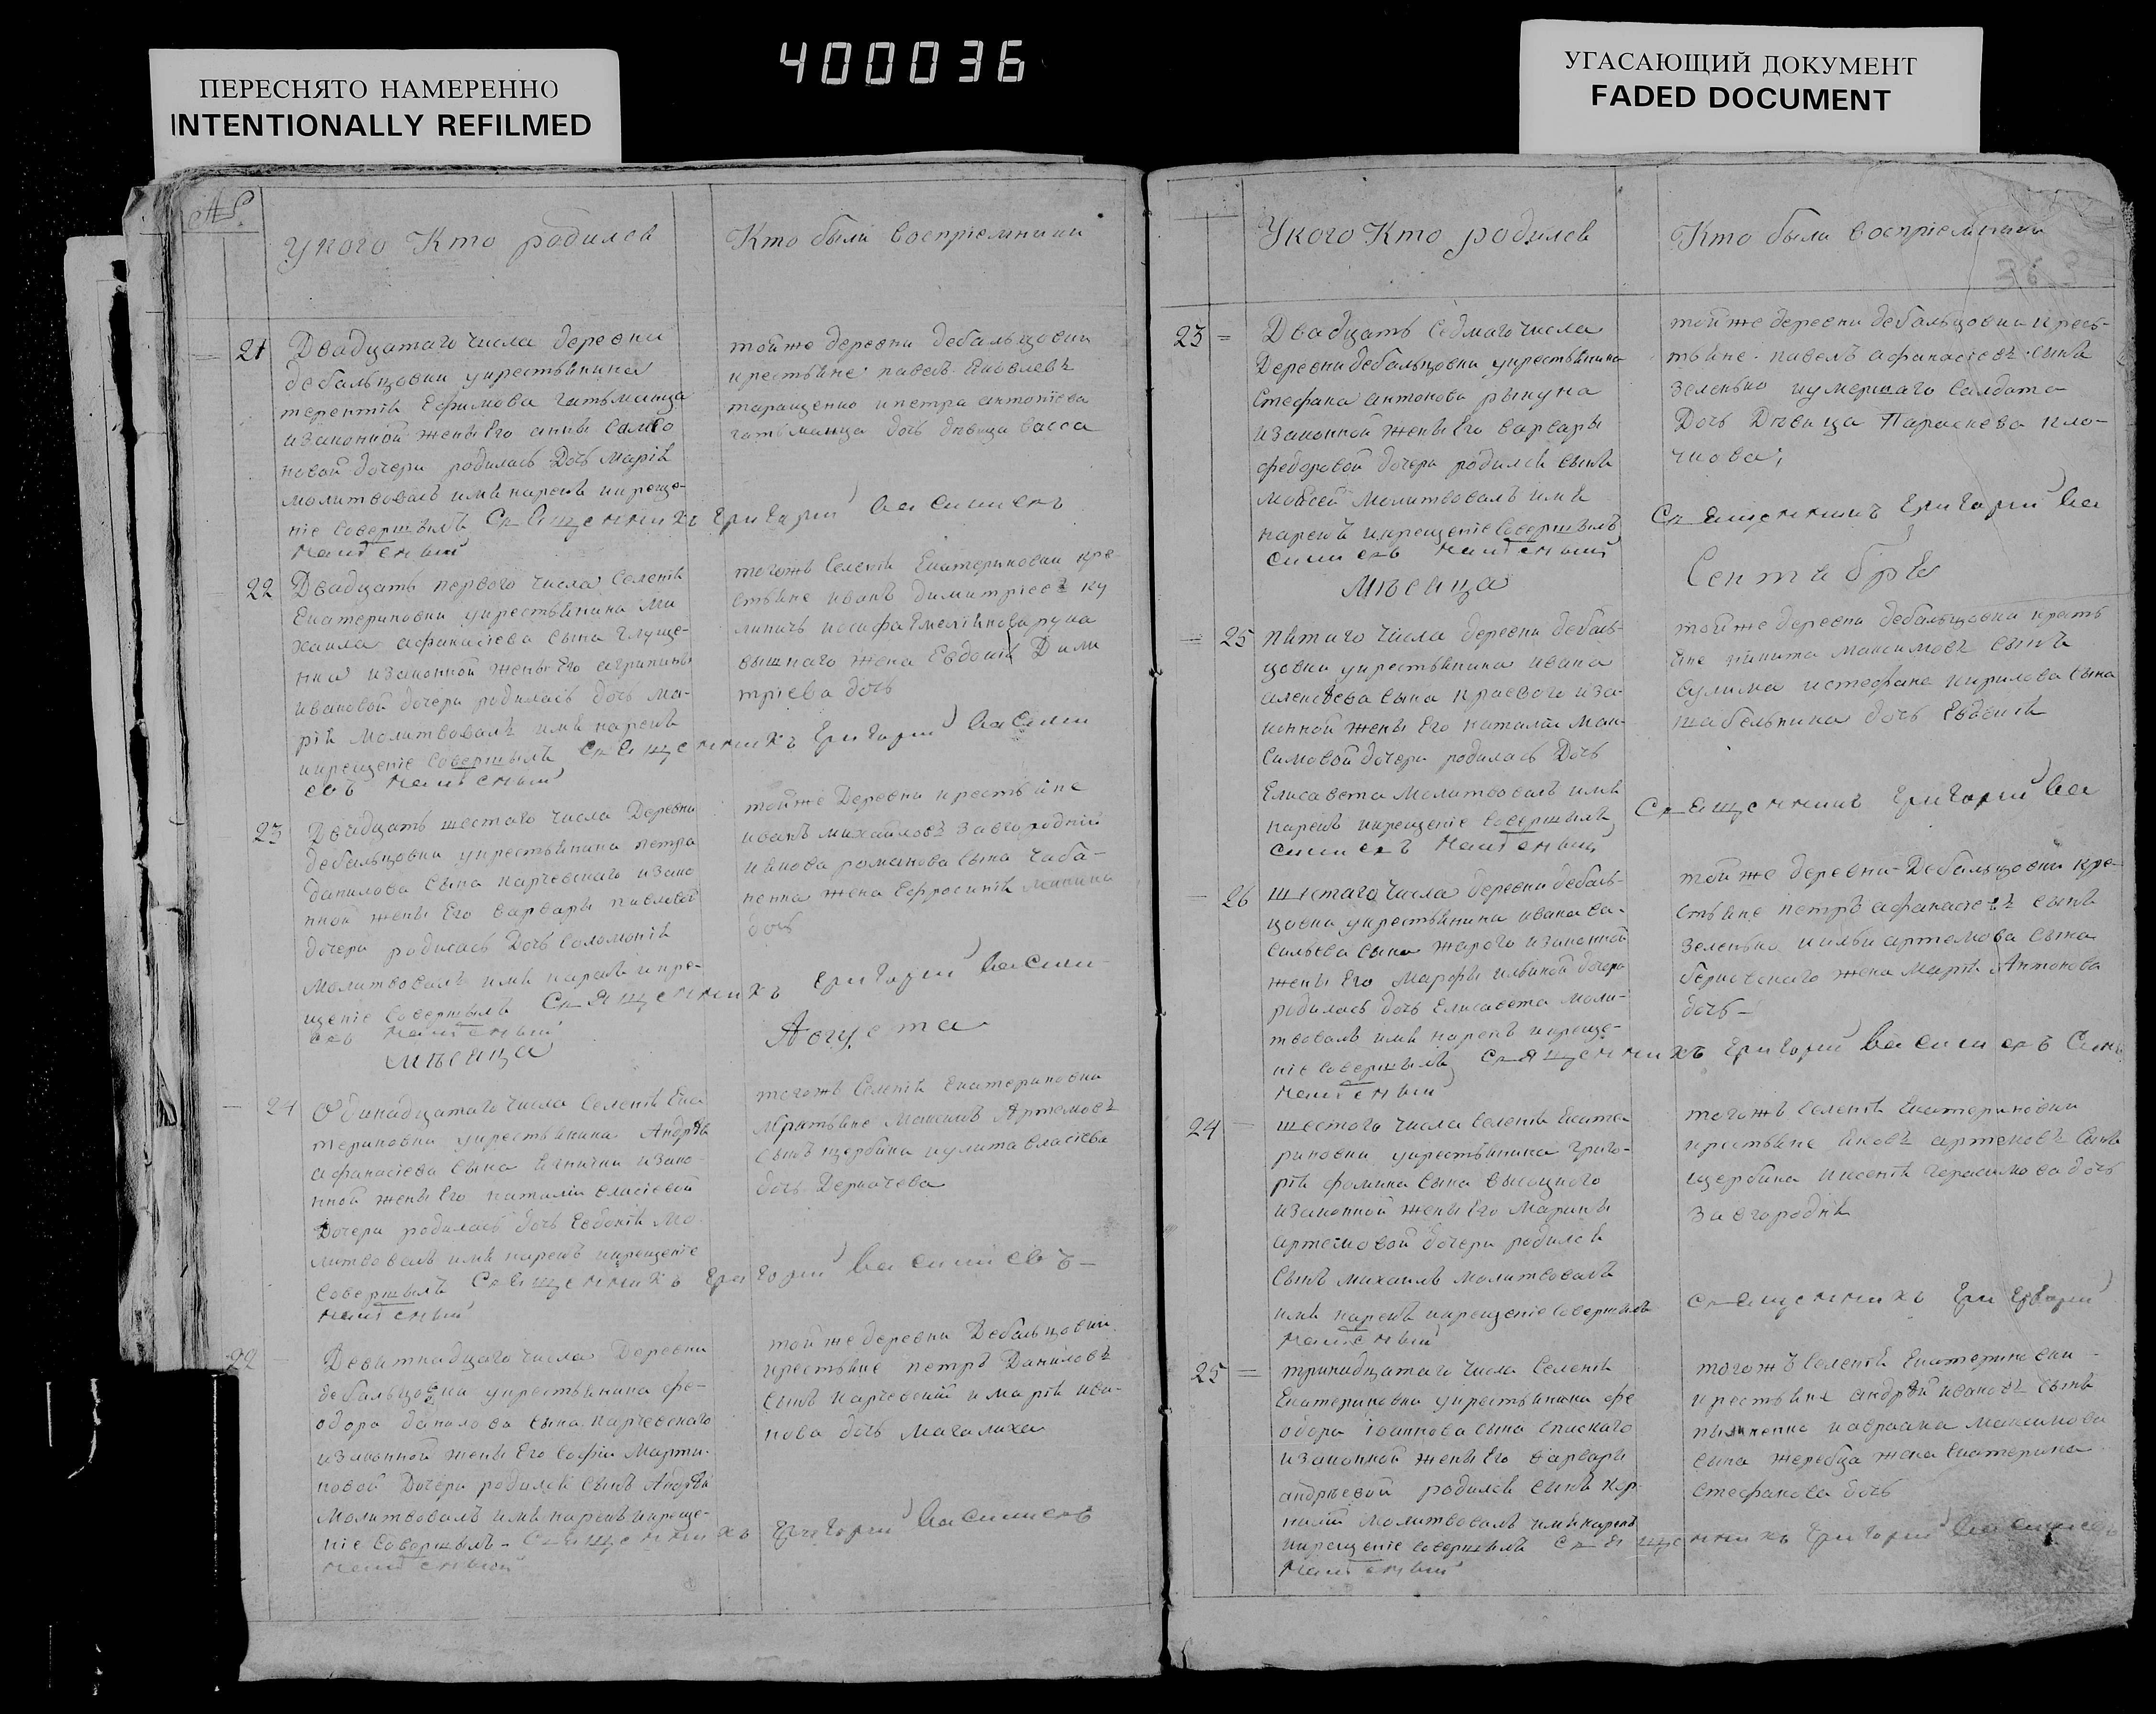 400036
ПЕРЕСНЯТО НАМЕРЕННО
INTENTIONALLY REFILMED
УГАСАЮЩИЙ ДОКУМЕНТ
FADED DOCUMENT
У кого Кто родился
Кто были воспріемники
21
Двадцатаго числа деревни
дебальцовки укрестьянина
терентія Ефимова гатьманца
изаконной жены Его анны
новой дочери родилась Дочь Марія
молитвовалъ имя нарекъ икреще-
ніе совершилъ Священникъ Григорій Василіевъ
тойже деревни дебальцовки
крестьяне павелъ Яковлевъ
таращенко ипетра антоніева
гатьманца дочь дѣвица васса
22
Двадцать перваго числа Селенія
Екатериновки укрестьянина Ми
хаила афанасіева сына глуще-
нка изаконной жены Его агрипины
ивановой дочери родилась дочь Ма-
рія молитвовалъ имя нарекъ
икрещеніе совершилъ Священникъ Григорій Васили
евъ
тогожъ Селенія Екатериновки кре-
стьяне иванъ димитріевъ ку
личъ иосифа Емеліянова
жена Евдокія Дими
тріева дочь
23
Двадцать шестаго числа Деревни
дебальцовки укрестьянина петра
данилова сына карчевскаго изако
нной жены Его варвары павловой
дочери родилась Дочь Соломонія
молитвовалъ имя нарекъ икре-
щеніе совершилъ Священникъ Григорій Васили-
евъ
тойже Деревни крестьяне
иванъ михайловъ завгородній
романова сына чаба-
ненка жена Ефросинія
дочь
мѣсяца Августа
24
Одинадцатаго числа Селенія Ека
териновки укрестьянина Андрѣя
афанасіева сына изако-
нной жены Его наталіи власіевой
Дочери родилась дочь Евдокія мо-
литвовалъ имя нарекъ икрещеніе
совершилъ Священникъ Григорій Василіевъ
тогожъ Селенія Екатериновки
Артемовъ
сынъ щербина иулита власіева
дочь Деркачева
22
Девятнадцаго числа Деревни
дебальцовки укрестьянина фе-
одора данилова сына карчевскаго
изаконной жены Его Софіи Марти-
новой Дочери родился сынъ Андрѣй
молитвовалъ имя нарекъ икреще-
ніе совершилъ Священникъ Григорій Василіевъ
той же деревни Дебальцовки
крестьяне петръ Даниловъ
сынъ карчевскій и марія ива-
нова дочь
У кого Кто родился
Кто были воспріемники
23
Двадцать Седмаго числа
Деревни дебальцовки укрестьянина
Стефана антонова рыкуна
изаконной жены Его варвары
федоровой дочери родился сынъ
моѵсей молитвовалъ имя
нарекъ икрещеніе совершилъ
Священникъ Григорій Ва
силіевъ
тойже деревни дебальцовки кресь-
тьяне павелъ афанасіевъ сынъ
зеленько иумершаго солдата
Дочь Дѣвица Параскева кло-
чкова;
Мѣсяца Сентября
25
пятаго числа деревни дебаль-
цовки укрестьянина ивана
алексѣева сына краевого иза-
конной жены Его наталіи Мак-
симовой дочери родилась Дочь
Елисавета молитвовалъ имя
нарекъ икрещеніе совершилъ
Священникъ Григорій Ва
силіевъ
тойже деревни дебальцовки кресть
яне никита максимовъ сынъ
сулима истефана кирилова сына
шабельника дочь Евдокія
26
шестаго числа деревни дебаль-
цовки укрестьянина ивана ва-
сильева сына жарого изаконной
жены Его марфы ильиной дочери
родилась дочь Елисавета моли-
твовалъ имя нарекъ икреще-
ніе совершилъ Священникъ Григорій Василіевъ
той же деревни Дебальцовки кре-
стьяне петръ афанасіевъ сынъ
зеленько иильи артемова сына
жена Марія Антонова
дочь
24
шестого числа селенія Екате
риновки укрестьянина григо-
рія фомина сына высоцкого
изаконной жены Его Марины
артемовой дочери родился
сынъ михаилъ молитвовалъ
имя нарекъ икрещеніе совершилъ
Священникъ Григорий
тогожъ селенія Екатериновки
крестьяне Яковъ артемовъ сынъ
щербина иксенія герасимова дочь
завгородня
25
тринадцатаго числа селенія
Екатериновки укрестьянина фе
одора іоаннова сына спискаго
изаконной жены Его варвары
андрѣевой родился сынъ кор
нилій молитвовалъ имя нарекъ
икрещеніе совершилъ Священникъ Григорій Василіевъ
тогожъ Селенія Екатериновки
крестьяне андрѣй ивановъ сынъ
иавраама максимова
сына жеребца жена Екатерина
Стефанова дочь